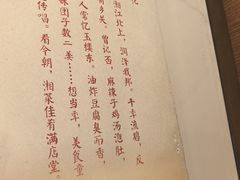 花
湘江北上，润泽栽邦。千年流觞，反
前乡关，曾记否，麻辣子鸡汤泡肚，
人常忆玉楼东。油炸豆腐臭而香，
味团子数二姜……想当年，美食童
传唱。看今朝，湘菜佳肴满店堂。